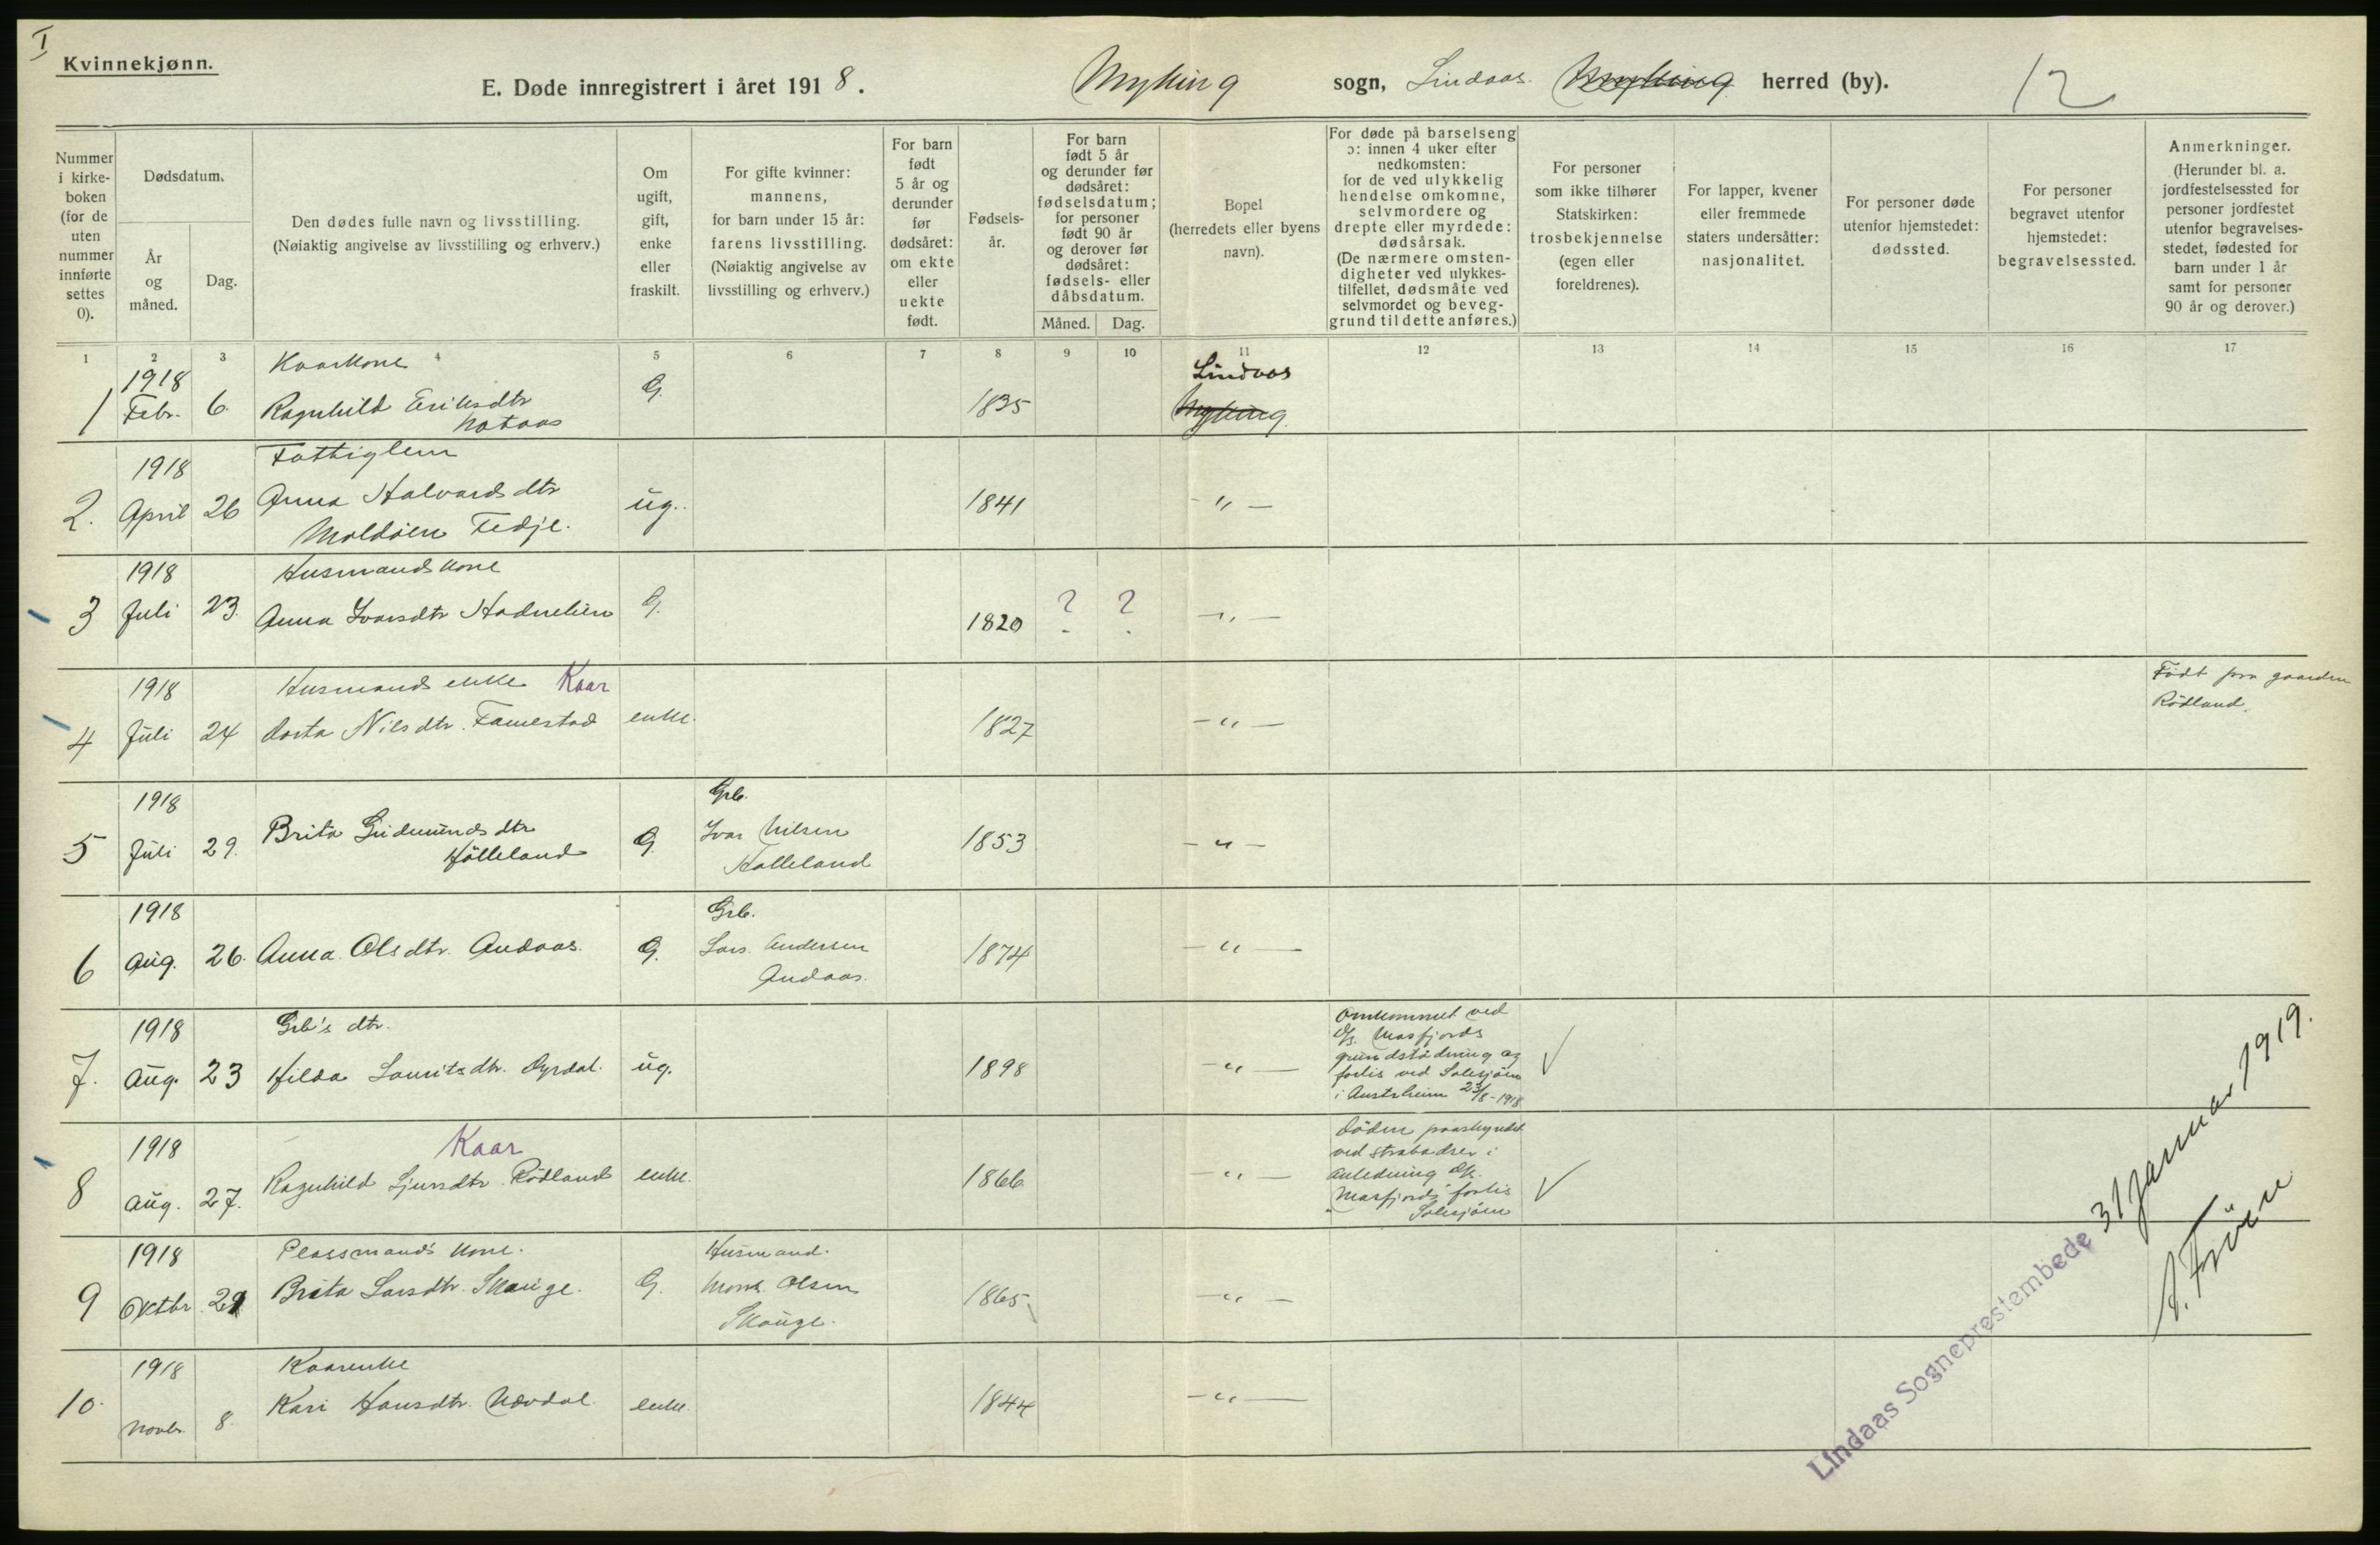 I
Kvinnekjønn.
E. Døde innregistrert i året 1918.
Myking sogn, Lindaas Myking herred (by).
12
Nummer i kirke-boken (for de uten nummer innførte settes 0).
Dødsdatum.
År og måned.
Dag.
Den dødes fulle navn og livsstilling.
(Nøiaktig angivelse av livsstilling og erhverv.)
Om ugift, gift, enke eller fraskilt.
For gifte kvinner: mannens, for barn under 15 år: farens livsstilling. (Nøiaktig angivelse av livsstilling og erhverv.)
For barn født 5 år og derunder før dødsåret: om ekte eller uekte født.
Fødsels-år.
For barn født 5 år og derunder før dødsåret: fødselsdatum; for personer født 90 år og derover før dødsåret: fødsels- eller dåbsdatum.
Måned.
Dag.
Bopel (herredets eller byens navn).
For døde på barselseng ɔ: innen 4 uker efter nedkomsten: for de ved ulykkelig hendelse omkomne, selvmordere og drepte eller myrdede: dødsårsak. (De nærmere omsten-digheter ved ulykkes-tilfellet, dødsmåte ved selvmordet og beveg-grund til dette anføres.)
For personer som ikke tilhører Statskirken: trosbekjennelse (egen eller foreldrenes).
For lapper, kvener eller fremmede staters undersåtter: nasjonalitet.
For personer døde utenfor hjemstedet: dødssted.
For personer begravet utenfor hjemstedet: begravelsessted.
Anmerkninger. (Herunder bl. a. jordfestelsessted for personer jordfestet utenfor begravelses-stedet, fødested for barn under 1 år samt for personer 90 år og derover.)
1 2 3 4 5 6 7 8 9 10 11 12 13 14 15 16 17
1 1918 Febr. 6. Kaarkone
Ragnhild Eriksdtr Nataas G. 1835 Lindaas Myking
2. 1918 April 26 Fattiglem
Anna Halvardsdtr
Moldöen Fedje. ug. 1841 - " -
3 1918 Juli 23. Husmandskone
Anna Ivarsdtr Hadnelien G. 1820 ? ? - " -
4 1918 Juli 24 Husmandsenke Kaar
Dorta Nilsdtr. Famestad enke. 1827 - " - Födt paa gaarden
Rödland.
5 1918 Juli 29. Brita Gudmundsdtr
Hölleland G. Grb.
Ivar Nilsen
Hølleland 1853 - " -
6 1918 Aug. 26. Anna Olsdtr. Andaas. G. Grb.
Lars Andersen
Andaas. 1874 - " -
7. 1918 Aug. 23 Grb's dtr.
Hilda Lauritsdtr. Dyrdal. ug. 1898 - " - Omkommet ved
D/s. Masfjords
grundstödning og
forlis ved Solesjöen
i Austrheim 23/8-1918
8 1918 Aug. 27. Kaar
Ragnhild Sjursdtr. Rödland enke. 1866 - " - Döden paaskyndet
ved strabadser i
anledning D/s.
"Masfjord's" forlis
Solesjöen
9 1918 Oktbr. 29 Plassmand's kone.
Brita Larsdtr. Skauge. G. Husmand.
Mons Olsen
Skauge. 1865 - " -
10. 1918 Novbr. 8. Kaarenke
Kari Hansdtr. Nævdal. enke. 1844 - " -
Lindaas Sogneprestembede 31 januar 1919.